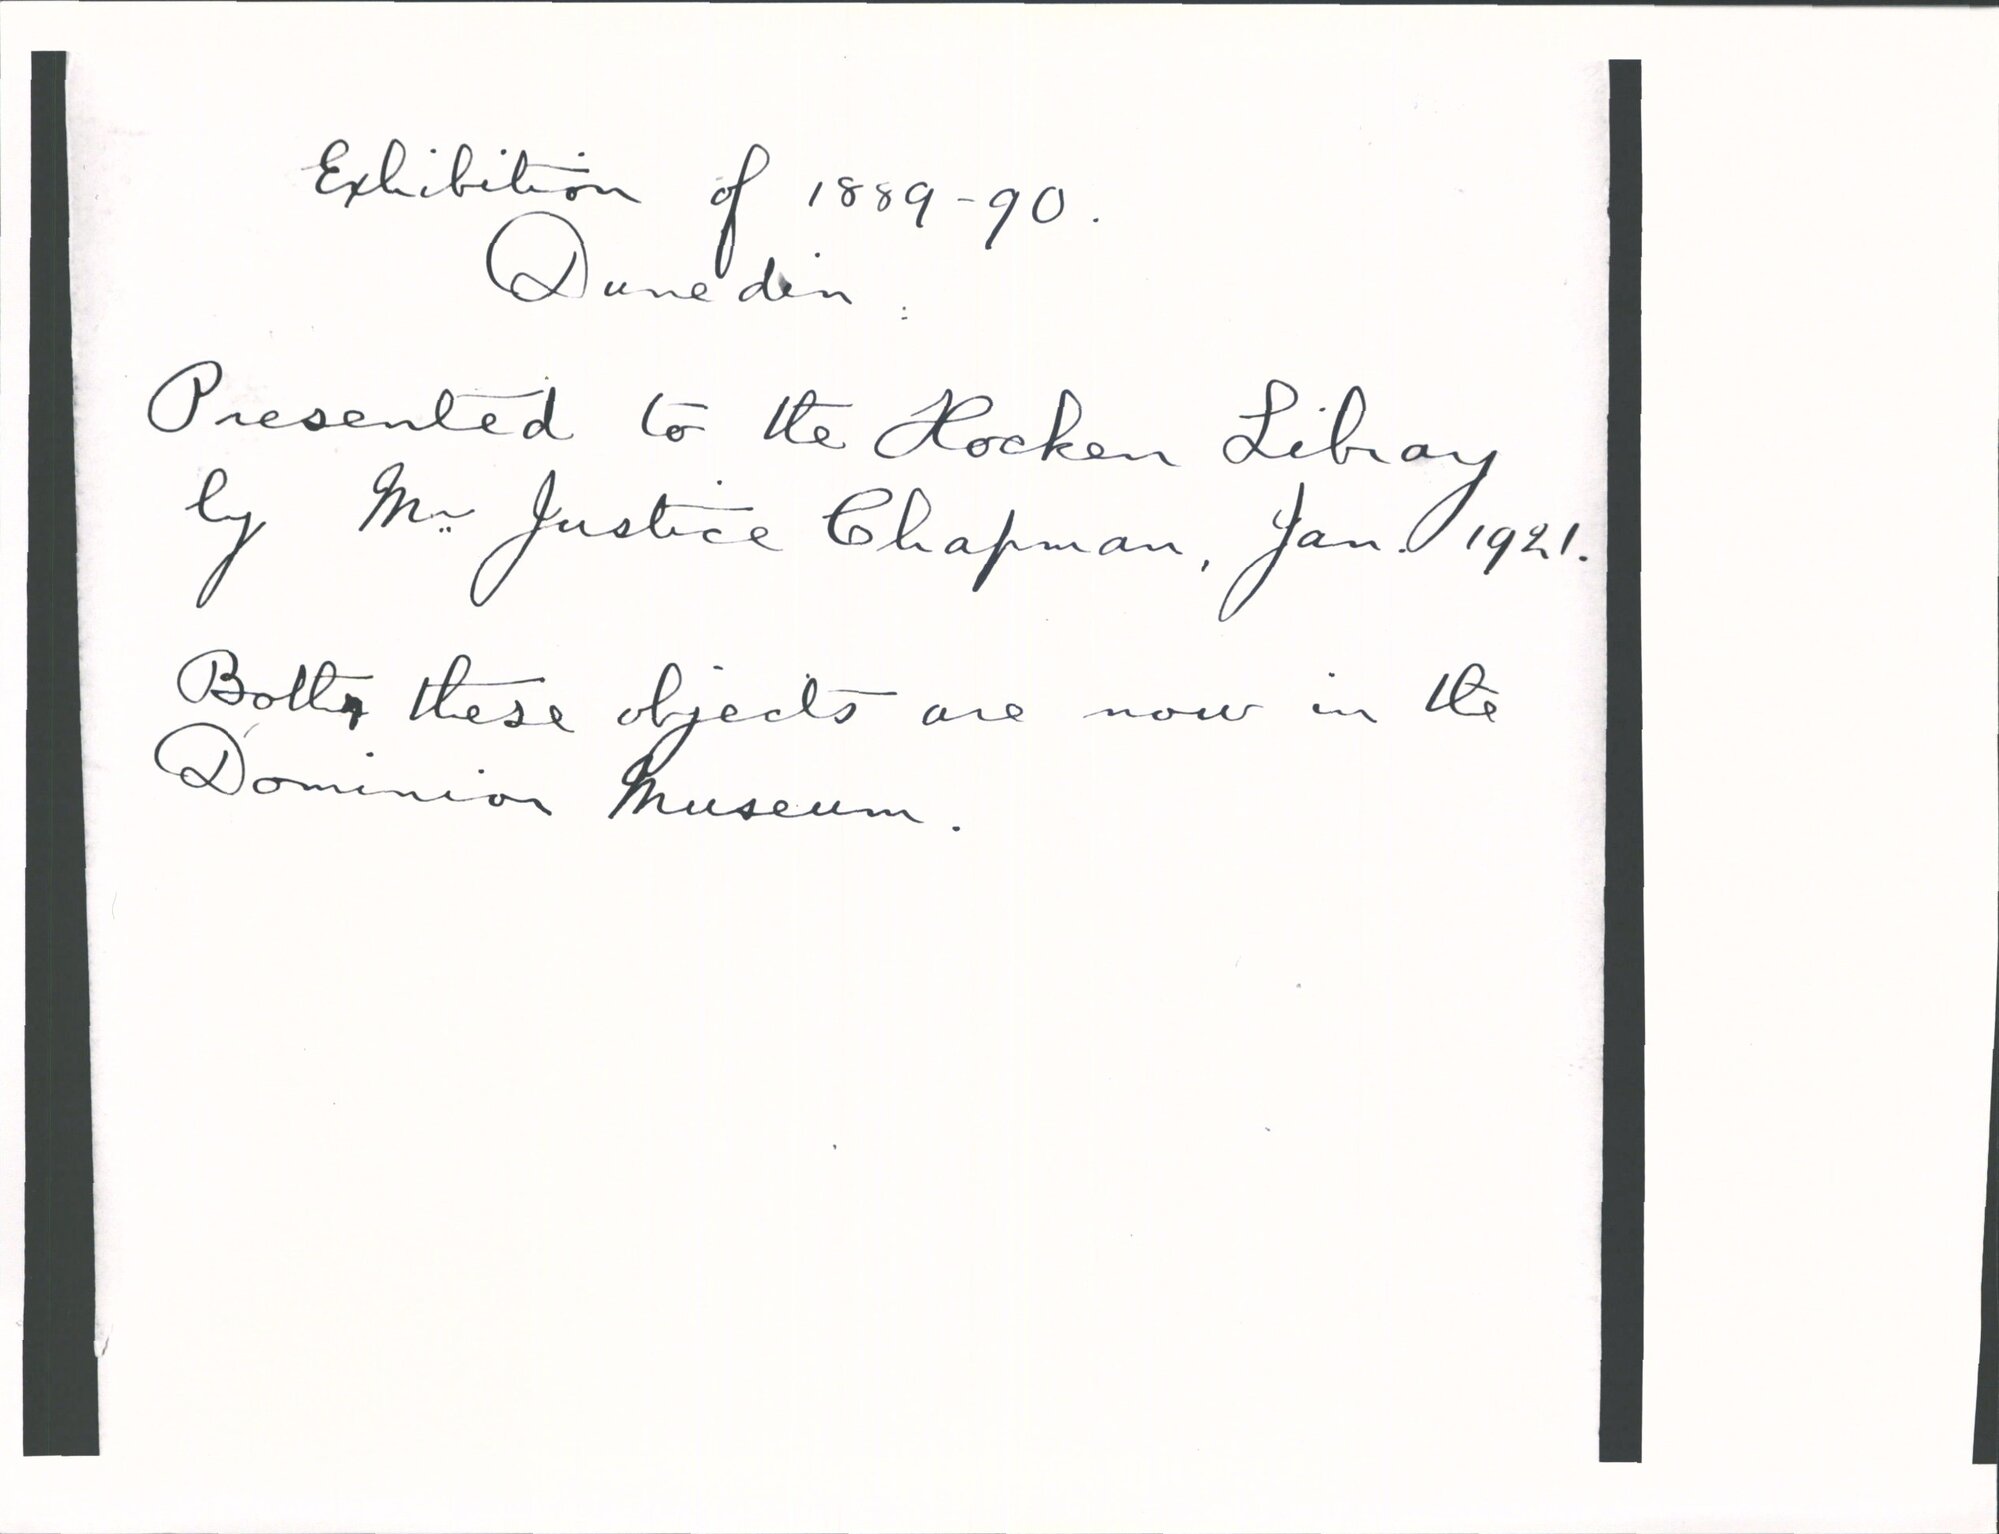 Exhibition of 1889-90.
Dunedin.
Presented to the Hocken Library
by Mr. Justice Chapman, Jan. 1921.
Both these objects are now in the
Dominion Museum.